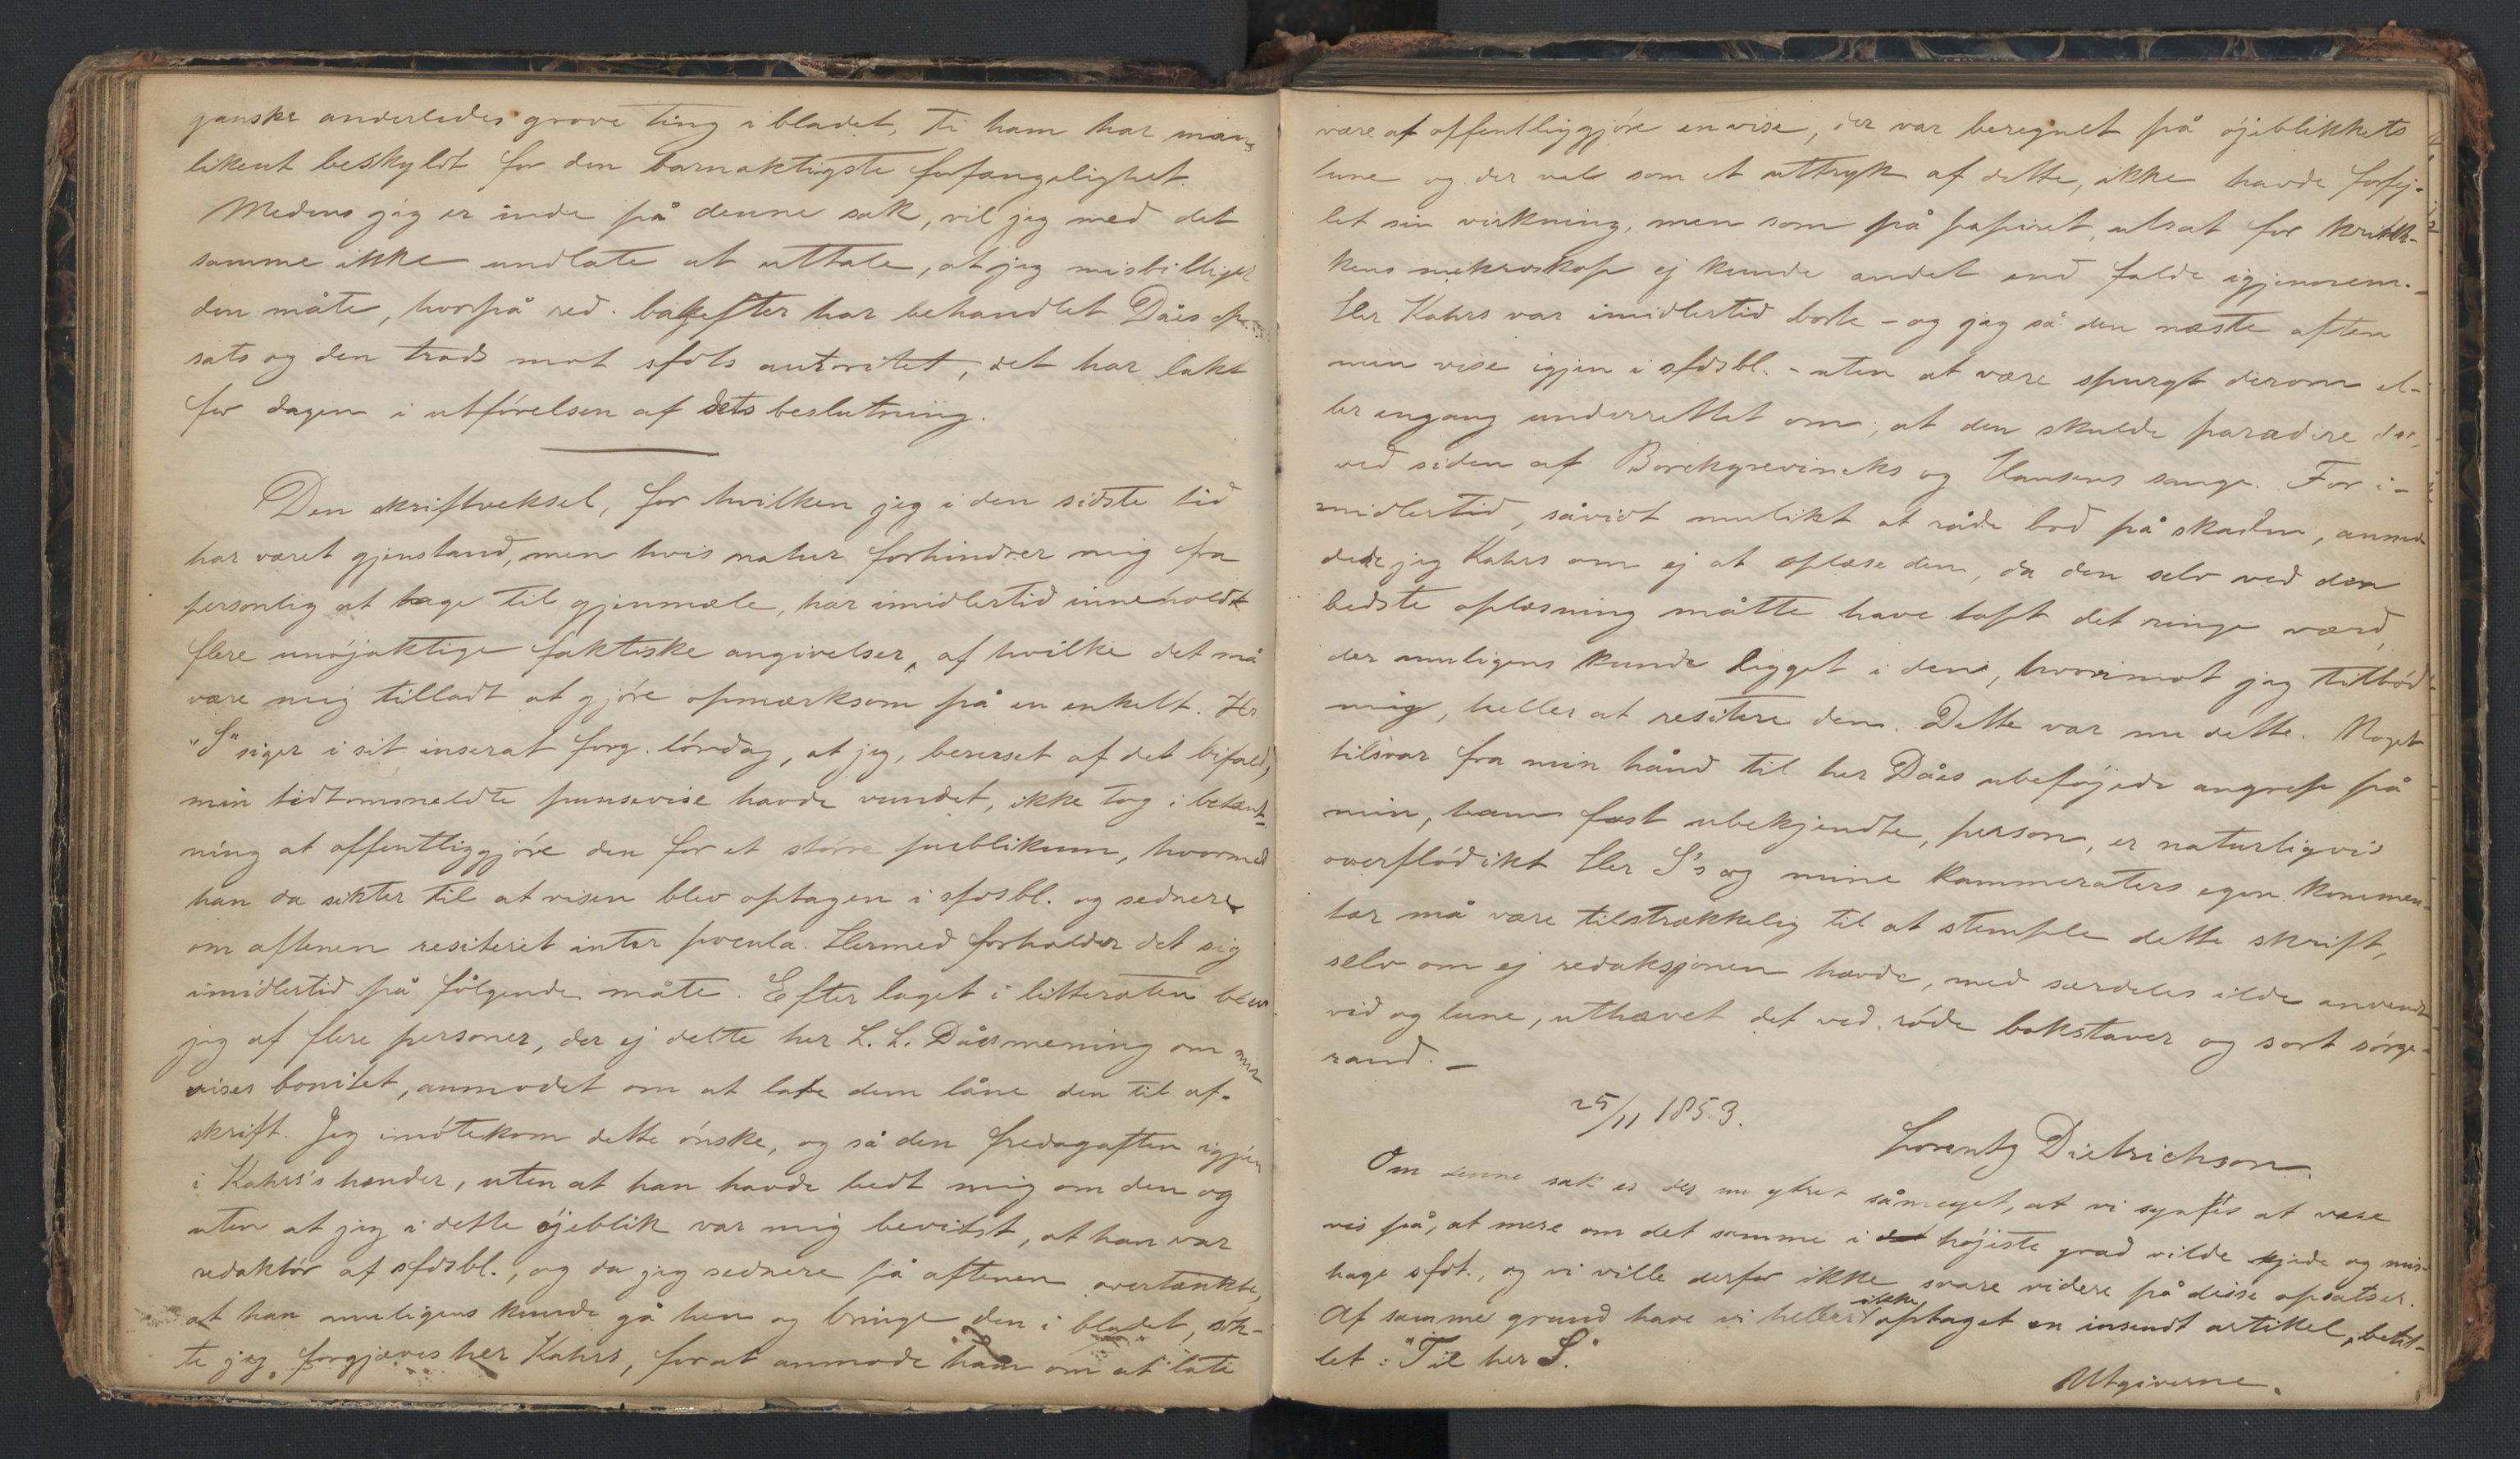 ganske anderledes grove ting i bladet, ti ham har man
likeut beskyldt for den barnaktigste forfængelighet.
Medens jeg er inde på denne sak, vil jeg med det
samme ikke undlate at uttale, at jeg misbilliger
den måte, hvorpå red. bagefter har behandlet Dåes op-
sats og den trods mot sfdts autoritet, det har lakt
for dagen i utførelsen af dets beslutning.
Den skriftveksel, for hvilken jeg i den sidste tid
har været gjenstand, men hvis natur forhindrer mig fra
personlig at tage til gjenmæle, har imidlertid inneholdt
flere unøjaktige faktiske angivelser, af hvilke det må
være mig tilladt at gjøre opmærksom på en enkelt. Hr
"S" siger i sit inserat forg. lørdag, at jeg, beruset af det bifald,
min tidtomмeldte punsevise havde vundet, ikke tog i betænk-
ning at offentliggjøre den for et større publikum, hvormed
han da sikter til at visen blev optagen i sfdsbl. og sednere
om aftenen resiteret inter pocula. Hermed forholder det sig
imidlertid på følgende måte. Efter laget i litteraten blev
jeg af flere personer, der ej delte her L. L. Dåes mening om min
vises bonitet, anmodet om at late dem låne den til af-
skrift. Jeg imøtekom dette ønske, og så den fredagaften igjen
i Kahrs's hænder, uten at han havde bedt mig om den og
uten at jeg i dette øjeblik var mig bevitst, at han var
redaktør af sfdsbl., og da jeg sednere på aftenen overtænkte,
at han muligens kunde gå hen og bringe den i bladet, søk-
te jeg forgjæves her Kahrs, for at anmode ham om at late
være at offentliggjøre en vise, der var beregnet på øjeblikkets
lune og der vel som et uttryk af dette, ikke havde forfej-
let sin virkning, men som på papiret, utsat for kritik-
kens mikroskop ej kunde andet end falde igjennem. –
Her Kahrs var imidlertid borte – og jeg så den næste aften
min vise igjen i sfdsbl. – uten at være spurgt derom el-
ler engang underrettet om, at den skulde paradere der,
ved siden af Borchgrevincks og Hansens sange. For i-
midlertid, såvidt mulikt at råde bod på skaden, anmo-
dede jeg Kahrs om ej at oplæse den, da den selv ved den
bedste oplæsning måtte have tapt det ringe værd,
der muligens kunde ligget i den, hvorimot jeg tilbød
mig, heller at resitere den. Dette var nu dette. Noget
tilsvar fra min hånd til her Dåes ubeføjede angrep på
min, ham fast ubekjendte, person, er naturligvis
overflødikt Her S's og mine kammeraters egen kommen-
tar må være tilstrækkelig til at stemple dette skrift,
selv om ej redaksjonen havde, med særdeles ilde anvendt
vid og lune, uthævet det ved røde bokstaver og sort sørge-
rand. –
25/11 1853.
Lorentz Dietrichson
Om denne sak er der nu ytret såmeget, at vi synes at være
vis på, at mere om det samme i højeste grad vilde kjede og mis-
hage sfdt., og vi ville derfor ikke svare videre på disse opsatser.
Af samme grund have vi heller ikke optaget en insendt artikel, betit-
let: "Til her S."
Utgiverne.